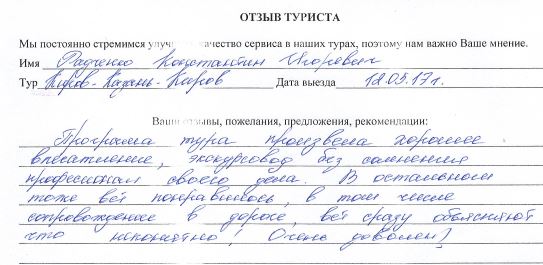 ОТЗЫВ ТУРИСТА
Мы постоянно стремимся улучшить качество сервиса в наших турах, поэтому нам важно Ваше мнение.
Имя Радченко Константин Игоревич
Тур Киров-Казань-Киров Дата выезда 12.05.17г.
Ваши отзывы, пожелания, предложения, рекомендации:
Програма тура произвела хорошее
впечатление, экскурсовод без сомнения
професионал своего дела. В остальном
тоже всё понравилось, в том числе
сопровождение в дороге, всё сразу объясняют
что непонятно! Очень доволен)